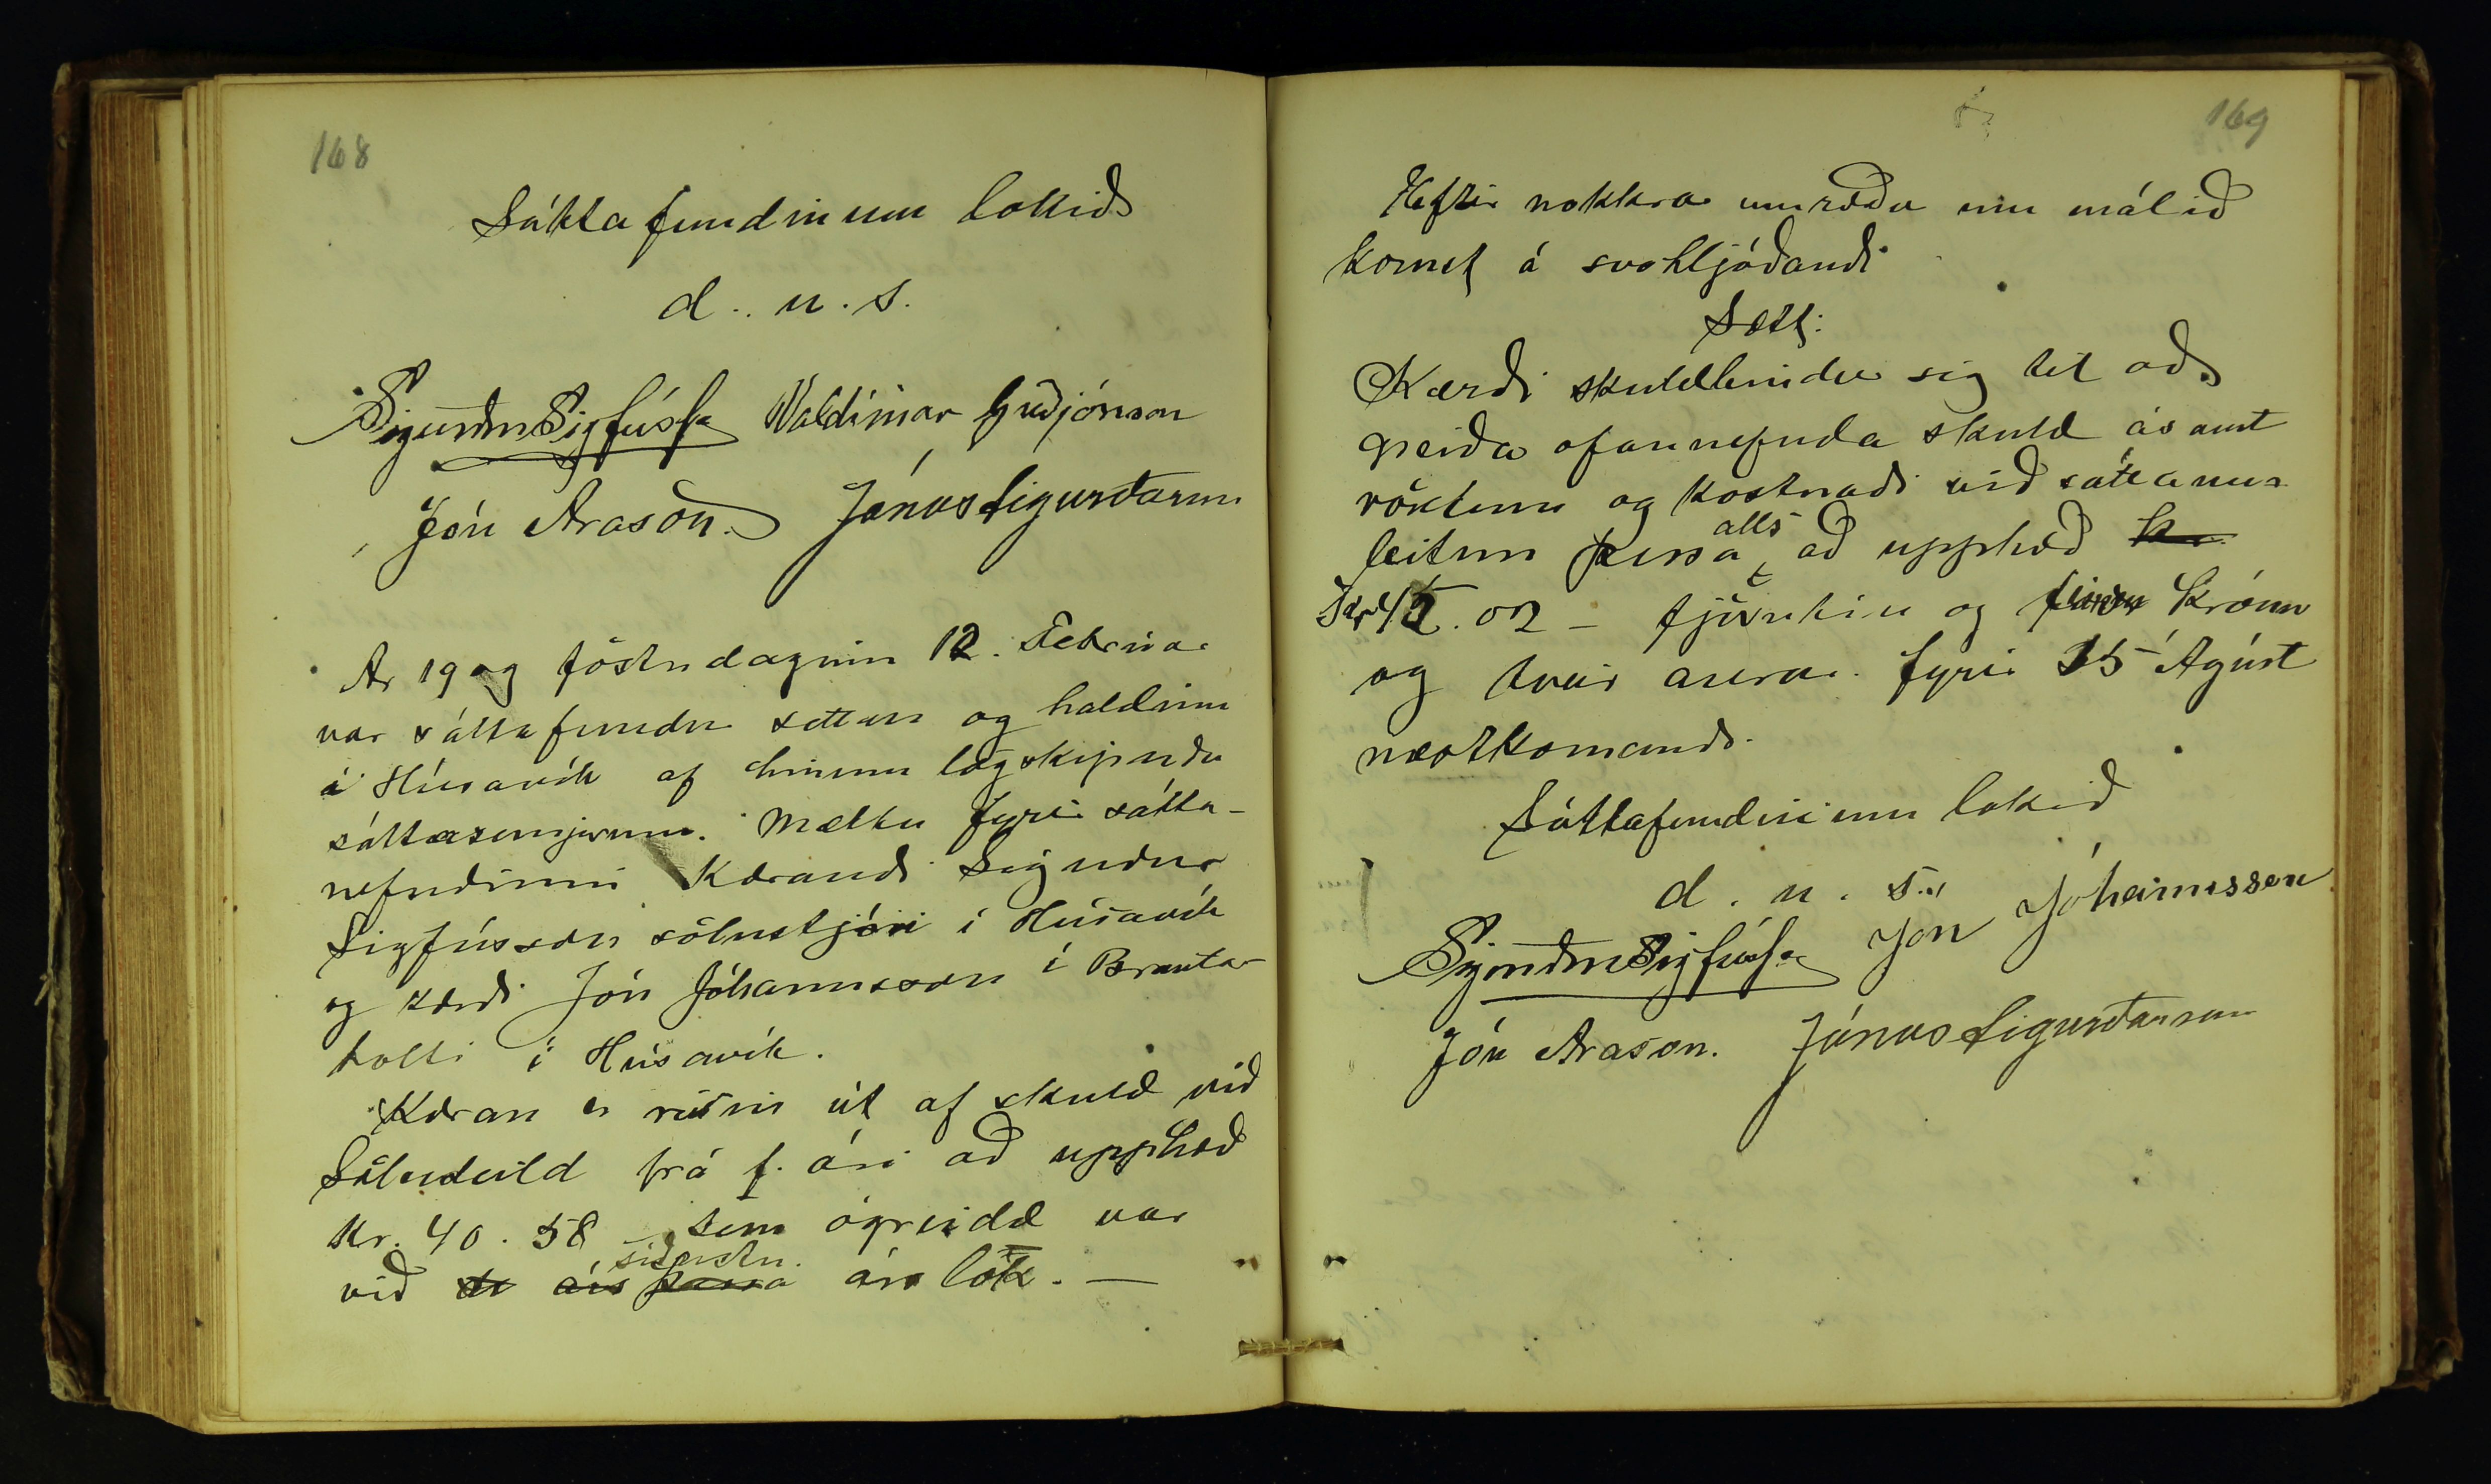 168
Sáttafundinum lokið
d. u. s.
Sigurður Sigfúss. Valdimar Guðjónson
Jón Arason. Jónas Sigurðarson
Ár 1909 föstudaginn 12. Febrúar
var sáttafundur settur og haldinn
á Húsavík af hinum lögskipuðu
sáttasemjurum. Mættu fyrir sátta-
nefndinni Kærandi Sigurður
Sigfússon sölustjóri í Húsavík
og kærði Jón Jóhannsson í Brauta-
holti í Húsavík.
Kæran er risin út af skuld við
Söludeild frá f. ári að upphæð
Kr. 40.58 sem ógreidd var
síðustu
við árs þessa árslok. —
169
Heftir nokkra umræðu um málið
komst á svohljóðandi
Sætt:
Kærði skuldbindur sig til að
greiða ofannefnda skuld ásamt
vöxtum og kostnaði við sáttaum-
leitun þessa alls að upphæð kr.
45.02 — fjörutíu og fimm Krónur
og tveir aurar. fyrir 15 Ágúst
næstkomandi.
Sáttafundinum lokið
d. u. s.
Sigurður Sigfúss. Jón Jóhannesson
Jón Arason. Jónas Sigurðarson